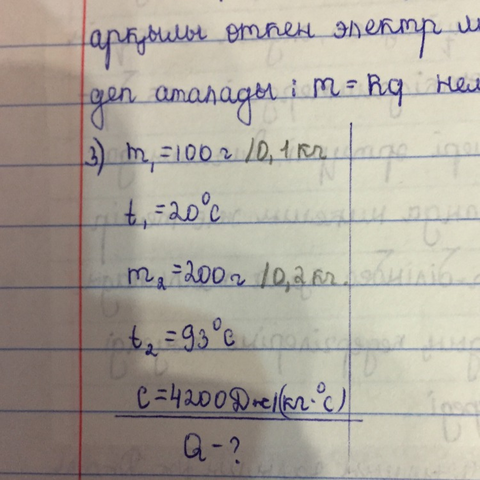 арқылы өткен электр
деп аталады: m = kq
3) m₁=100 г /0,1 кг
t₁=20°C
m₂=200 г /0,2 кг.
t₂=93°C
c=4200 Дж/(кг·°C)
Q-?